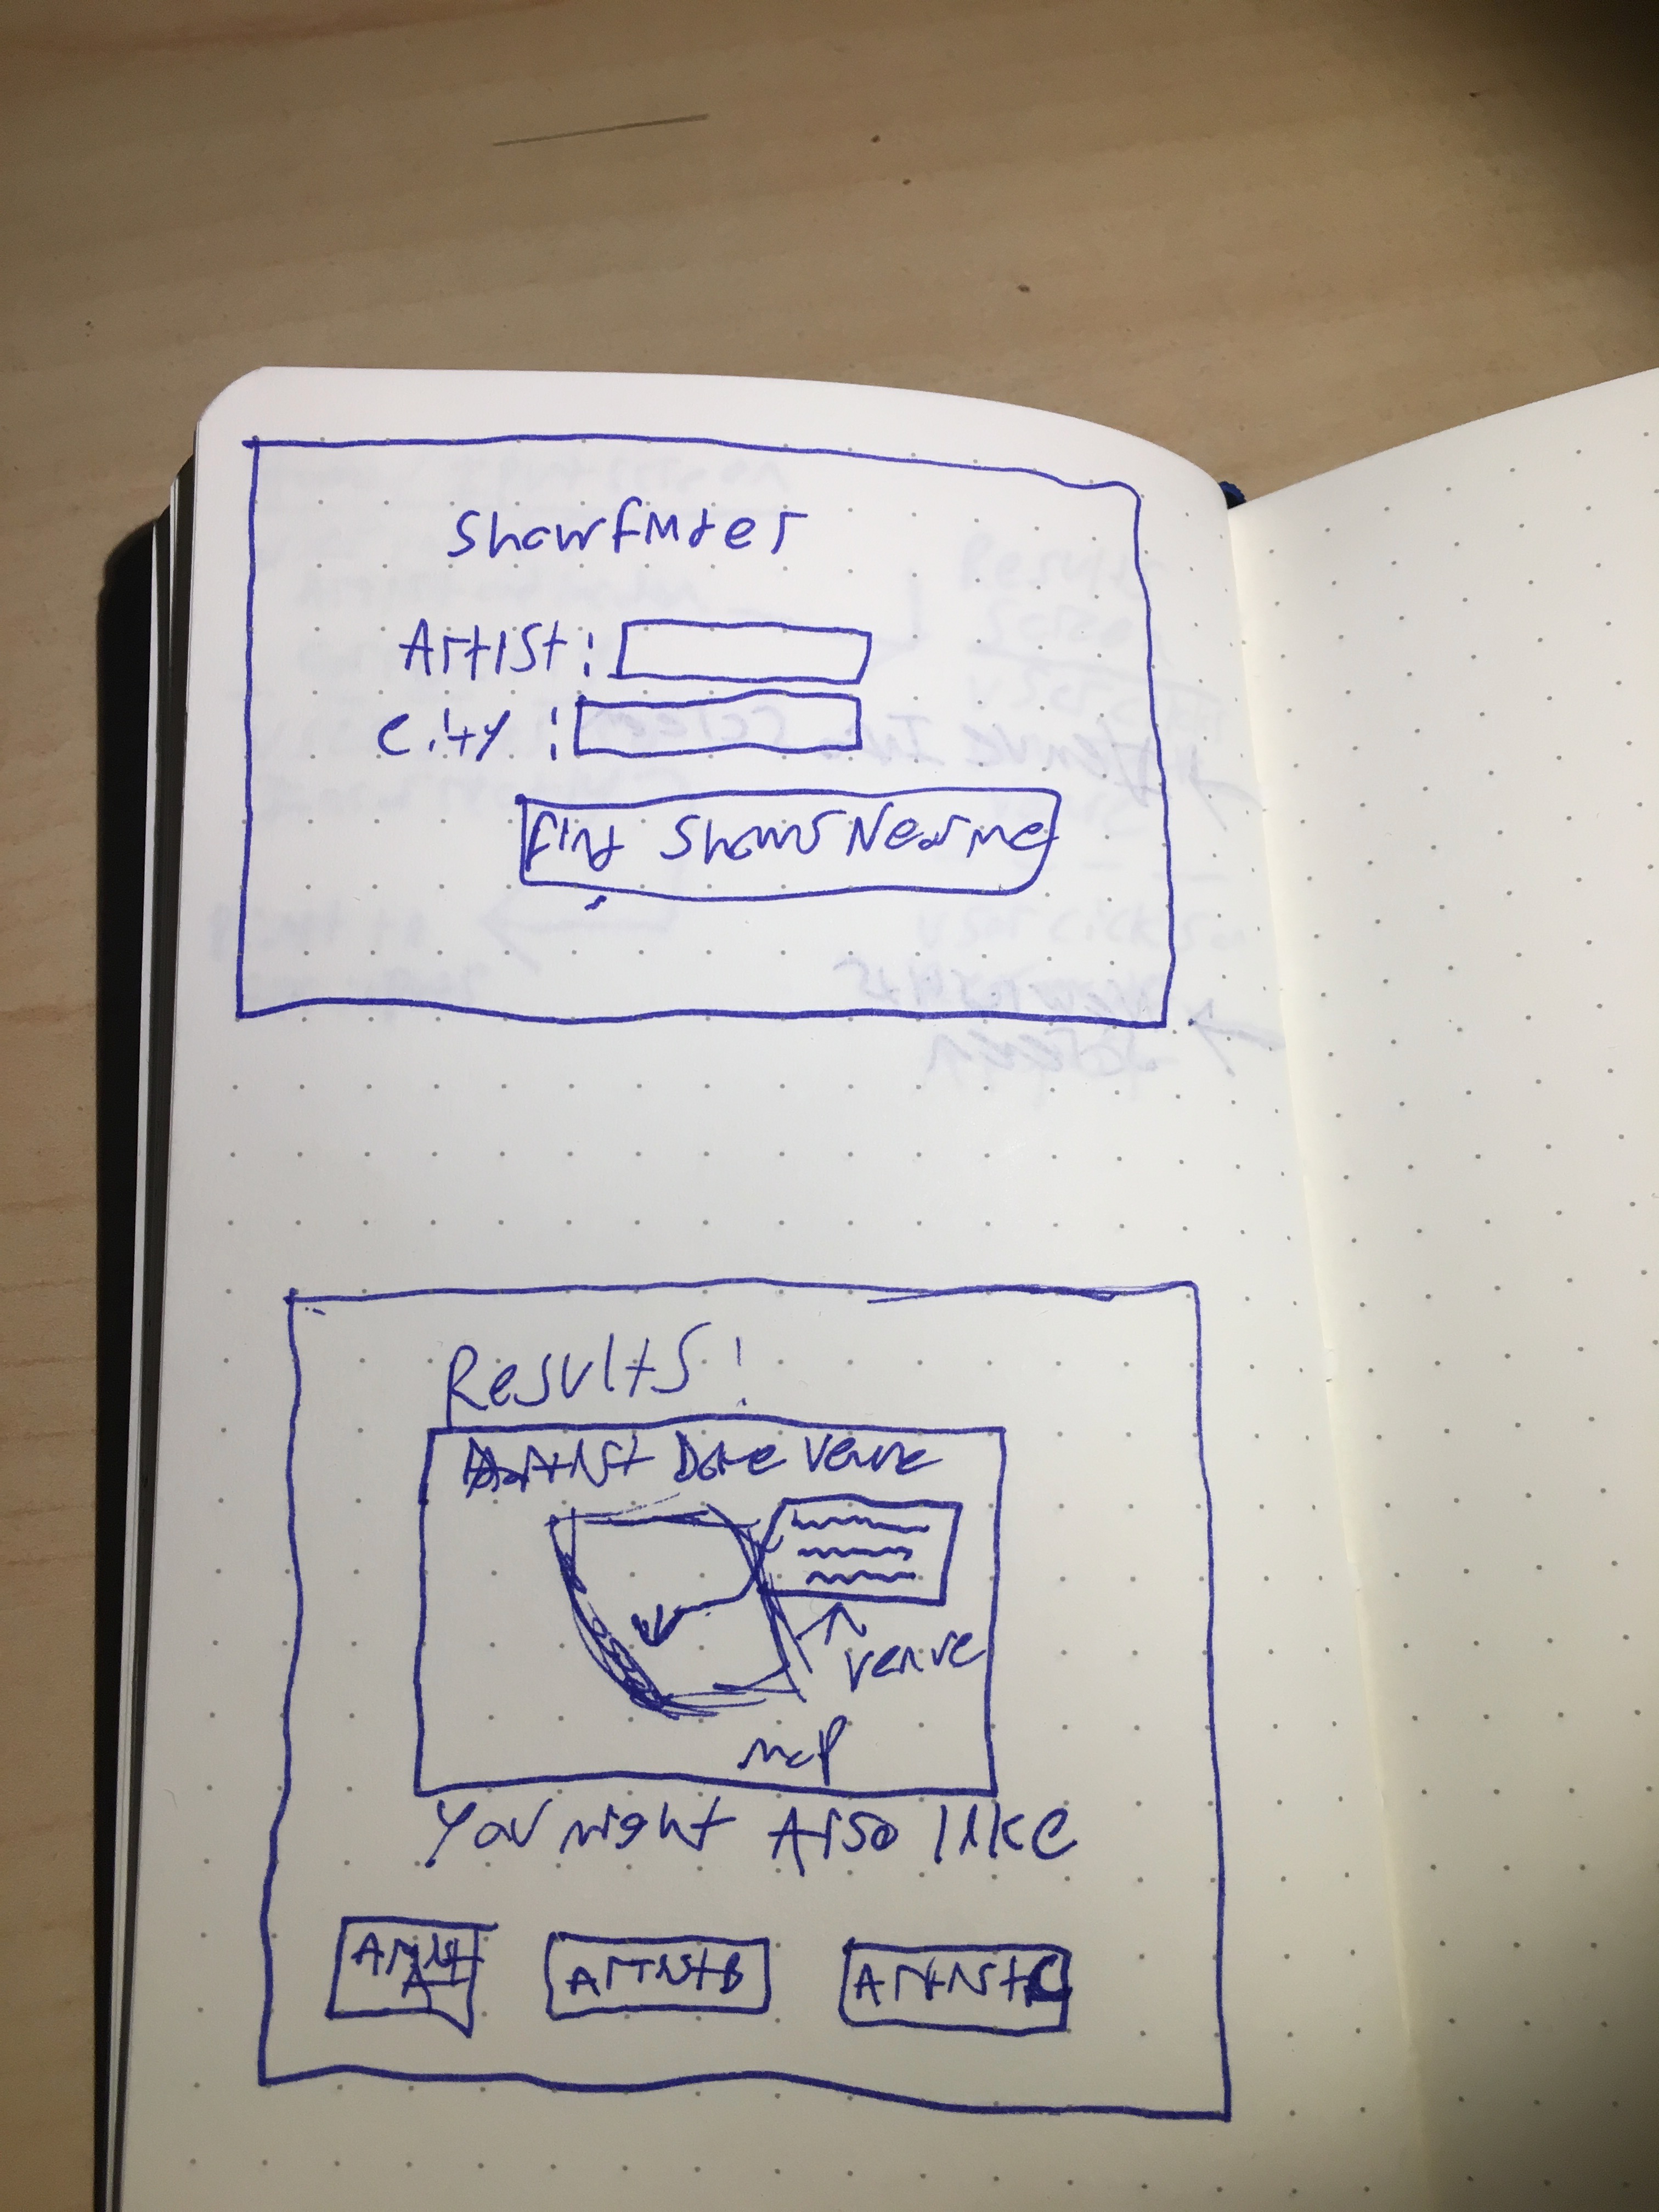 Showfinder
Artist:
City:
Find Shows Near me
Results!
Artist Date Venue
venue
map
You might Also like
Artist A
Artist B
Artist C